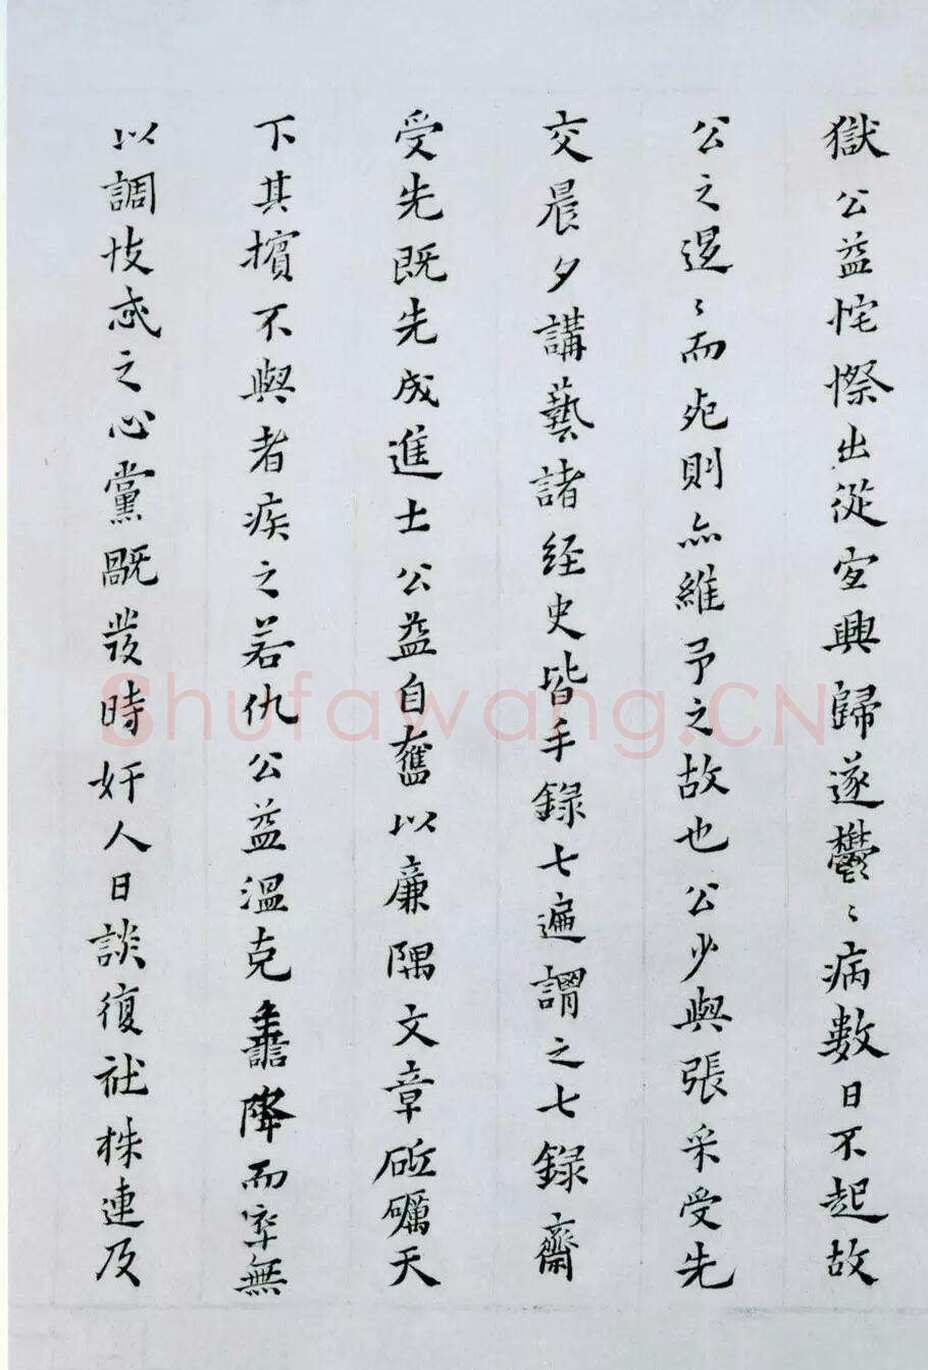 獄公益侘傺出從宜興歸遂鬱〻病數日不起故
公之遑〻而死則亦維予之故也公少與張采受先
交晨夕講藝諸經史皆手錄七遍謂之七錄齋
受先既先成進士公益自奮以廉隅文章砥礪天
下其擯不與者疾之若仇公益溫克降而卒無
以調忮忒之心黨既發時奸人日談復社株連及
Shufawang.CN